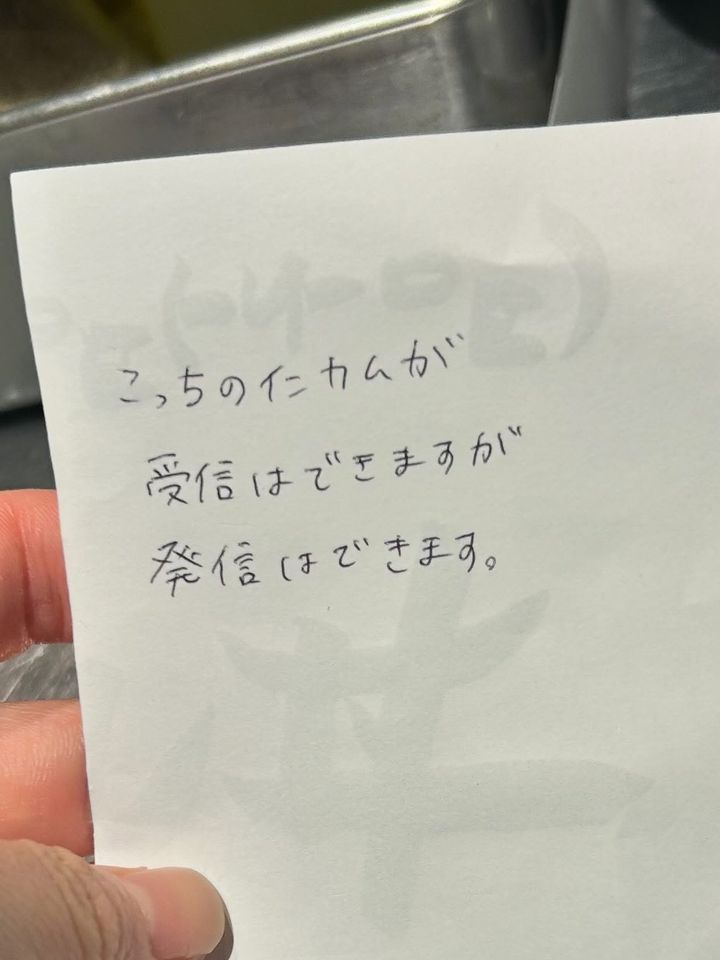 こっちのインカムが
受信はできますが
発信はできます。